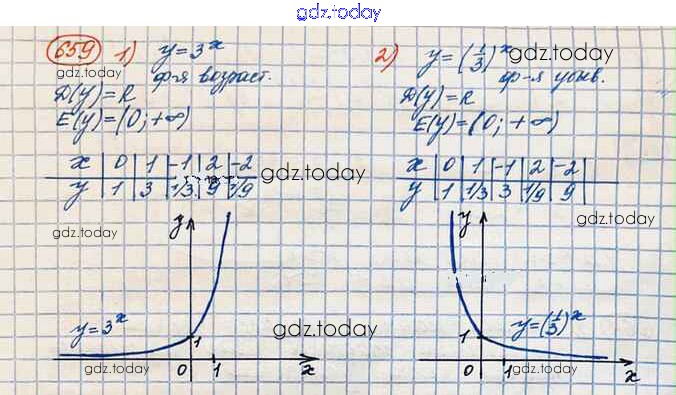 gdz.today
659 1) y=3^x
ф-я возраст.
gdz.today
D(y)=R
E(y)=(0;+∞)
x | 0 | 1 | -1 | 2 | -2
y | 1 | 3 | 1/3 | 9 | 1/9
gdz.today
gdz.today
y
y=3^x
1
0 1 x
gdz.today
gdz.today
2) y=(1/3)^x
gdz.today
ф-я убыв.
D(y)=R
gdz.today
E(y)=(0;+∞)
x | 0 | 1 | -1 | 2 | -2
y | 1 | 1/3 | 3 | 1/9 | 9
y
gdz.today
1
y=(1/3)^x
0 1 x
gdz.today
gdz.today